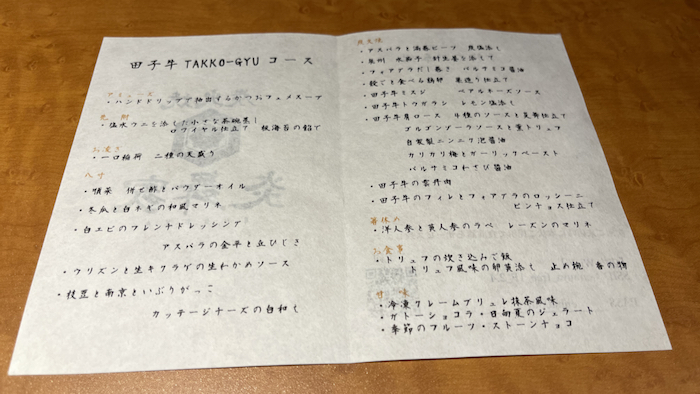 田子牛 TAKKO-GYU コース
・ハンドドリップで抽出するかつおフュメスープ
先附
・塩水ウニを添えた小さな茶碗蒸し
ロワイヤル仕立て 板海苔の餡で
お凌ぎ
・一口稲荷 二種の天盛り
八寸
・順菜 佛と酢とパウダーオイル
・冬瓜と白ネギの和風マリネ
・白エビのフレンチドレッシング
アスパラの金平と立ひじき
・ウリズンと生キクラゲの生わかめソース
・枝豆と南京といぶりがっこ
カッテージチーズの白和え
炭火焼
・アスパラと渦巻ビーツ 炭塩添え
・泉州 水茄子 針生姜を添えて
・フォアグラだし巻き バルサミコ醤油
・殻ごと食べる鶏卵 巣造り仕立て
・田子牛ミスジ ベアルネーズソース
・田子牛トウガラシ レモン塩添え
・田子牛肩ロース 4種のソースと昆布仕立て
ゴルゴンゾーラソースと黒トリュフ
自家製ニンニク泡醤油
カリカリ梅とガーリックペースト
バルサミコわさび醤油
・田子牛の雲丹肉
・田子牛のフィレとフォアグラのロッシーニ
ピンチョス仕立て
箸休め
・洋人参と黄人参のラペ レーズンのマリネ
お食事
・トリュフの炊き込みご飯
トリュフ風味の卵黄添え 止め椀 香の物
甘味
・冷凍クレームブリュレ抹茶風味
・ガトーショコラ・日向夏のジェラート
・季節のフルーツ・ストーンチョコ